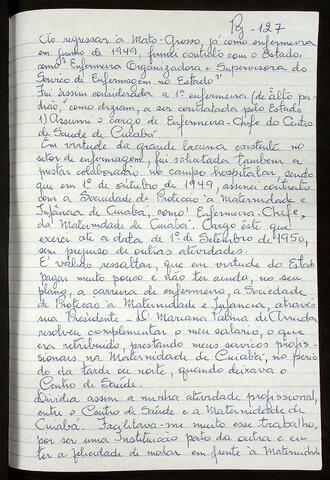 Pg - 127
Ao regressar à Mato-Grosso, já como enfermeira
em junho de 1949, firmei contrato com o Estado,
como "Enfermeira Organizadora e Supervisora do
Serviço de Enfermagem no Estado"
Fui assim considerada a 1ª enfermeira (de "alto pa-
drão", como diziam, a ser contratada pelo Estado
1) Assumi o cargo de Enfermeira-Chefe do Centro
de Saúde de Cuiabá.
Em virtude da grande lacuna existente no
setor de enfermagem, fui solicitada também a
prestar colaboração no campo hospitalar, sendo
que em 1º de outubro de 1949, assinei contrato
com a Sociedade de Proteção à Maternidade e
Infância de Cuiabá, como "Enfermeira-Chefe,
da Maternidade de Cuiabá. Cargo êste que
exerci até a data de 1º de Setembro de 1950,
sem prejuiso de outras atividades.
E' válido ressaltar, que em virtude do Estado
pagar muito pouco e não ter ainda, no seu
plano, a carreira de enfermeiro, a Sociedade
de Proteção à Maternidade e Infância, através
sua Presidente - D. Mariana Palma de Arruda
resolveu complementar o meu salário, o que
era retribuido, prestando meus serviços profis-
sionais na Maternidade de Cuiabá, no perío
do da tarde ou noite, quando deixava o
Centro de Saúde.
Dividia assim a minha atividade profissional,
entre o Centro de Saúde e a Maternidade de
Cuiabá. Facilitava-me muito esse trabalho,
por ser uma Instituição perto da outra e eu
ter a felicidade de morar em frente à Maternidade